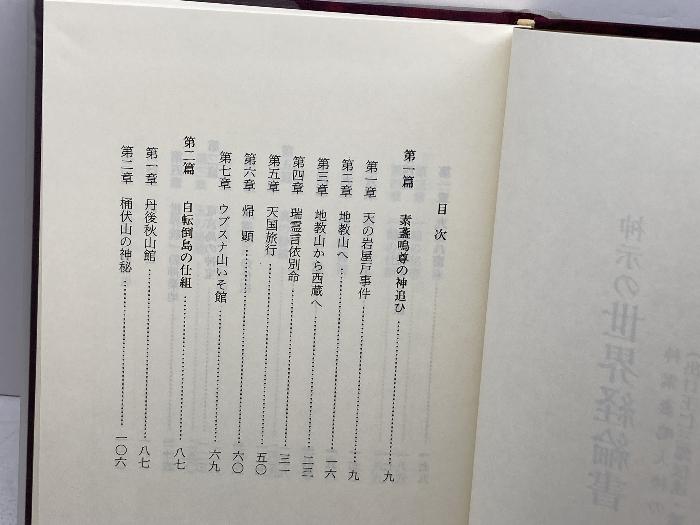 目次
第一篇 素盞嗚尊の神追ひ……………………九
第一章 天の岩屋戸事件……………………九
第二章 地教山へ……………………一六
第三章 地教山から西蔵へ……………………二三
第四章 瑞霊言依別命……………………三一
第五章 天国旅行……………………五〇
第六章 帰顕……………………六〇
第七章 ウブスナ山いそ館……………………六九
第二篇 自転倒島の仕組……………………八七
第一章 丹後秋山館……………………八七
第二章 桶伏山の神秘……………………一〇六
神示の世界経綸書